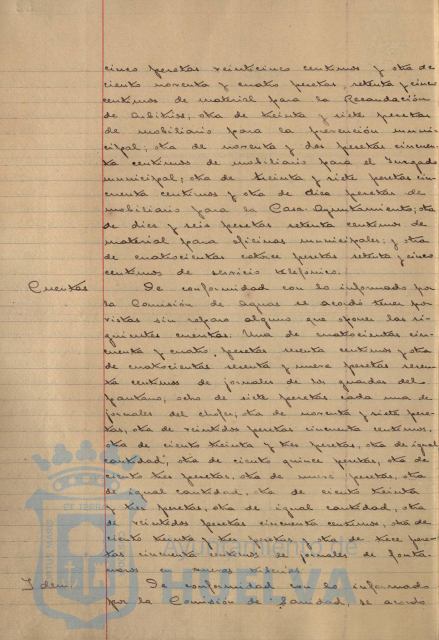 cinco pesetas veinticinco centimos y otra de
ciento noventa y cuatro pesetas setenta y cinco
centimos de material para la Recaudación
de Arbitrios, otra de treinta y siete pesetas
de mobiliario para la prevención muni-
cipal; otra de noventa y dos pesetas cincuen-
ta centimos de mobiliario para el Juzgado
municipal; otra de treinta y siete pesetas cin-
cuenta centimos y otra de diez pesetas de
mobiliario para la Casa Ayuntamiento; otra
de diez y seis pesetas setenta centimos de
material para oficinas municipales; y otra
de cuatrocientas catorce pesetas setenta y cinco
centimos de servicio telefonico.
Cuentas De conformidad con lo informado por
la Comisión de Aguas se acordó tener por
vistas sin reparo alguno que oponer las si-
guientes cuentas: Una de cuatrocientas cin-
cuenta y cuatro pesetas sesenta centimos y otra
de cuatrocientas sesenta y nueve pesetas
centimos de jornales de los guardas del
pantano; ocho de siete pesetas cada una de
jornales del chofer; otra de noventa y siete pese-
tas, otra de veintidos pesetas cincuenta centimos,
otra de ciento treinta y tres pesetas, otra de igual
cantidad, otra de ciento quince pesetas, otra de
ciento tres pesetas, otra de nueve pesetas, otra
de igual cantidad, otra de ciento treinta
y tres pesetas, otra de igual cantidad, otra
de veintidos pesetas cincuenta centimos, otra de
ciento treinta y tres pesetas y otra de trece pese-
tas cincuenta centimos de jornales de fonta-
neros en nuevas tuberias.
Idem De conformidad con lo informado
por la Comisión de Sanidad, se acordó
Ayuntamiento de
HUELVA